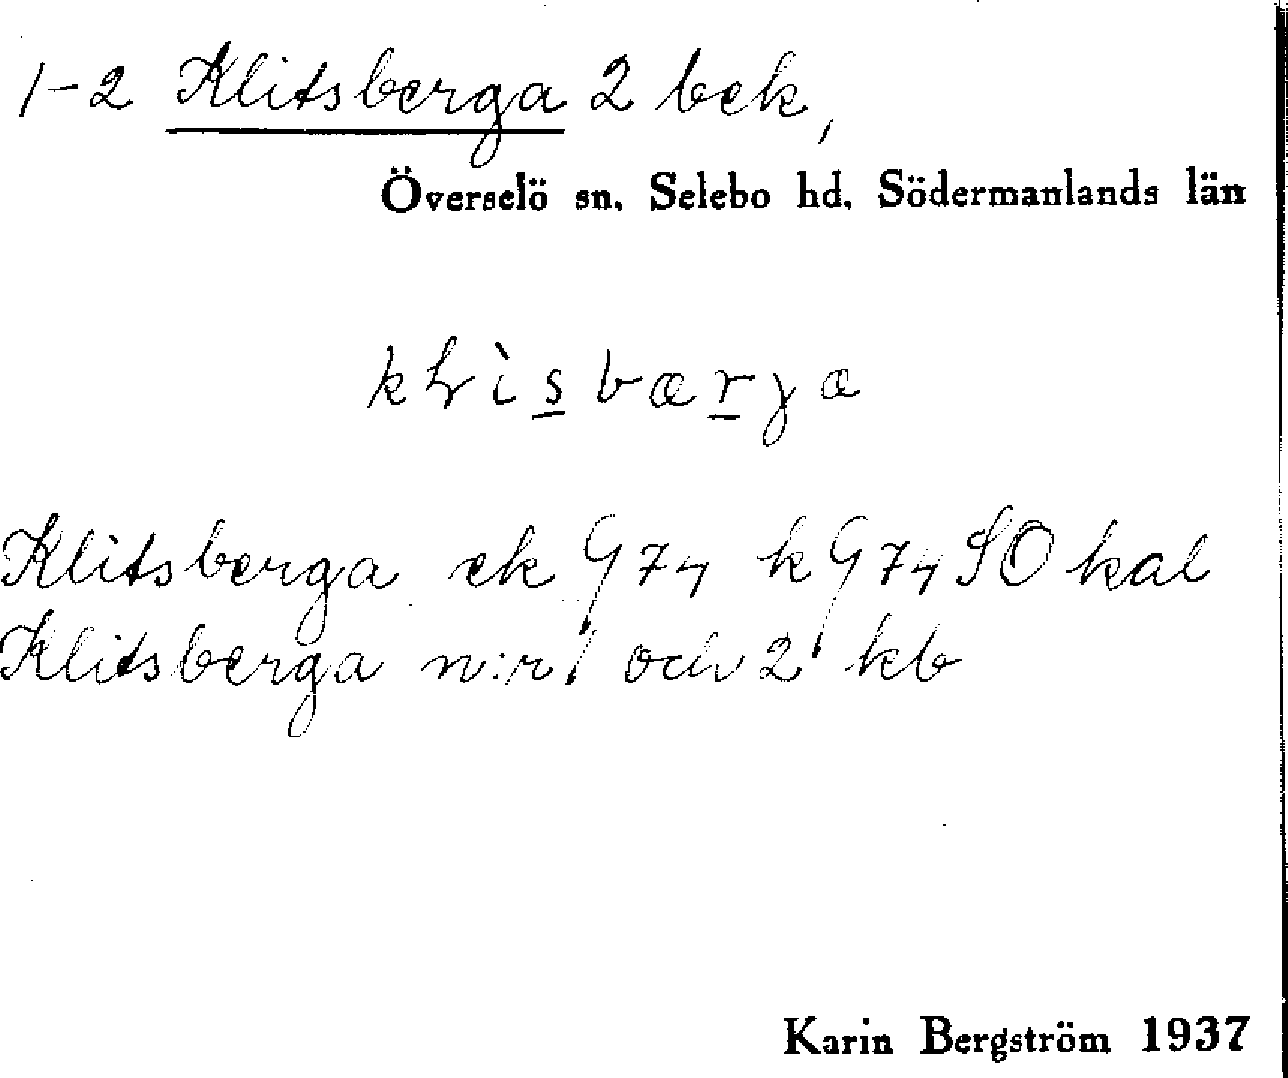 1-2 Klitsberga 2 bek,
Överselö sn. Selebo hd. Södermanlands län
Klitsberga ek G 74 k G 74 SO kal
Klitsberga n:r 1 och 2 kb
Karin Bergström 1937